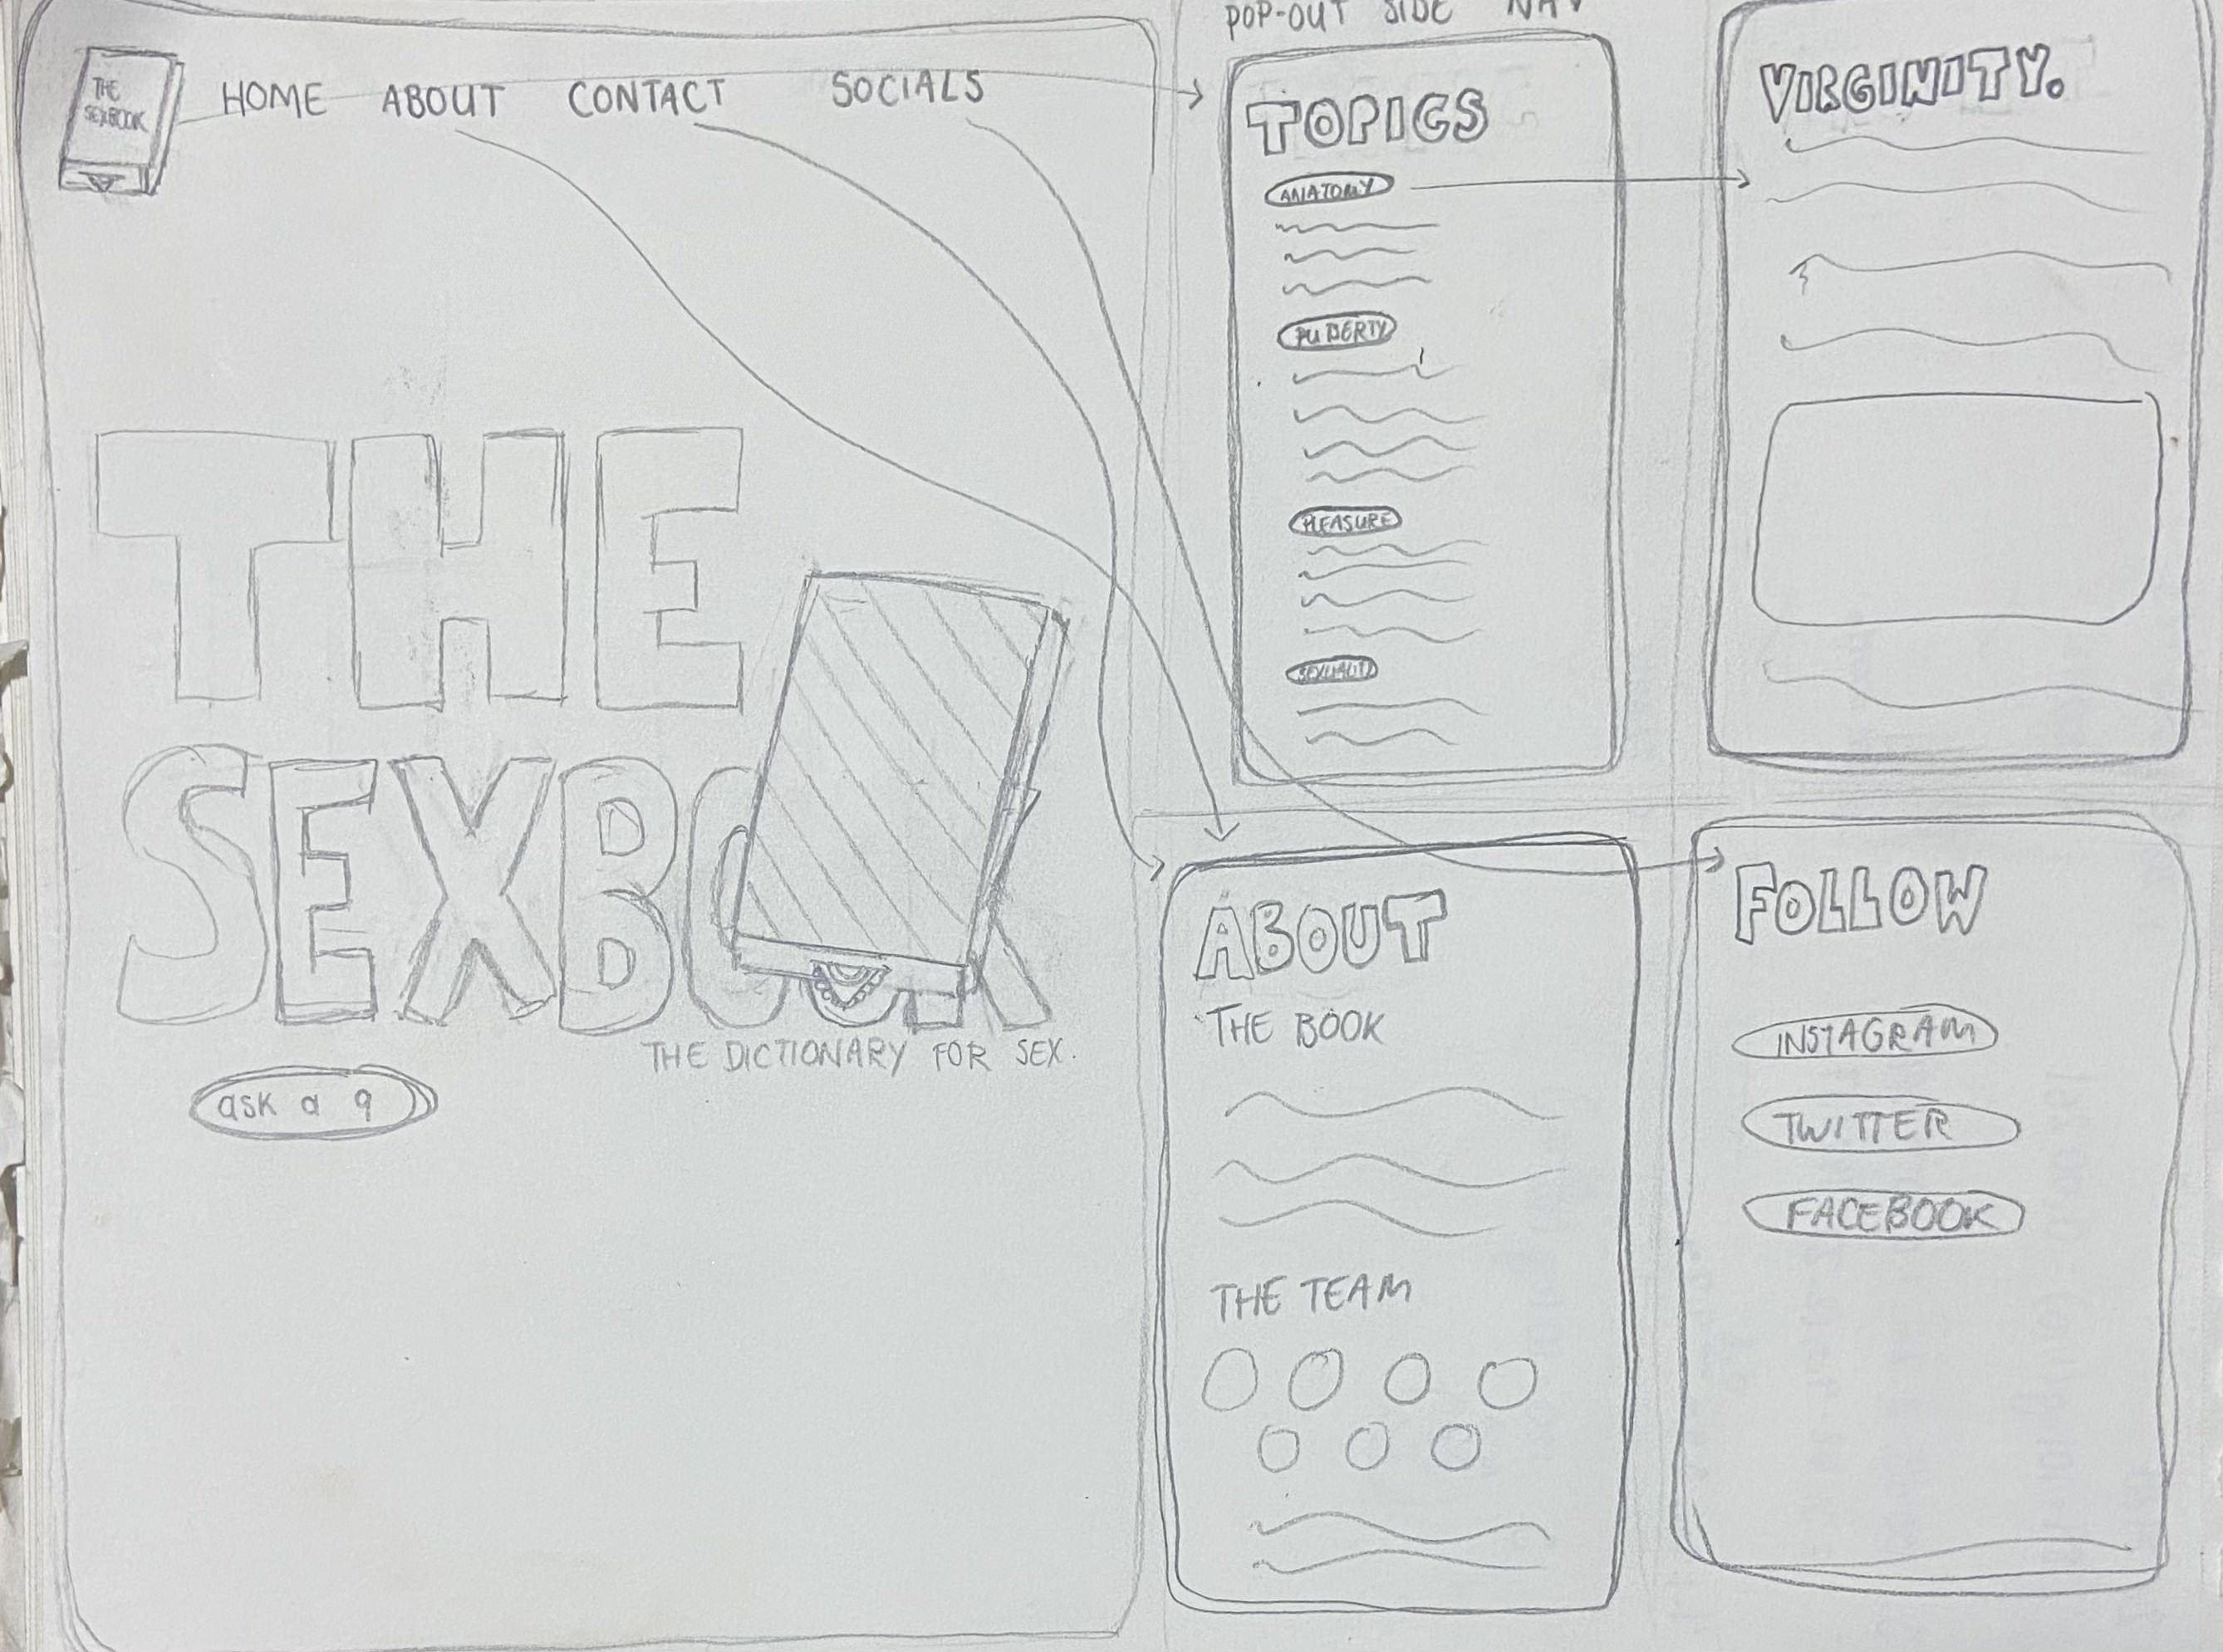 THE
SEXBOOK
HOME ABOUT CONTACT SOCIALS
THE
SEXBOOK
THE DICTIONARY FOR SEX.
ask a q
POP-OUT SIDE NAV
TOPICS
ANATOMY
PUBERTY
PLEASURE
SEXUALITY
VIRGINITY.
ABOUT
THE BOOK
THE TEAM
FOLLOW
INSTAGRAM
TWITTER
FACEBOOK